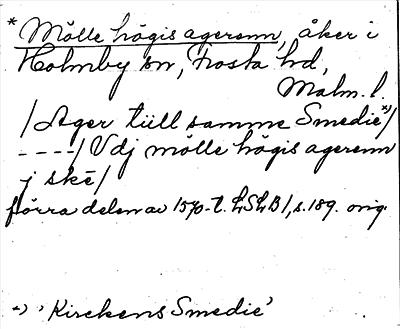 * Mölle högis agerenn, åker i
Holmby sn, Frosta hd,
Malm. l.
/Ager tüll samme Smedie x)/
----/Vdj mölle högis agerenn
j skē/
förra delen av 1570-t. LSLB1, s. 189. orig.
x) 'Kirckens Smedie'